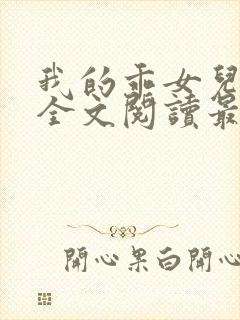 我的乖女兒
全文閱讀最
開心果白開心